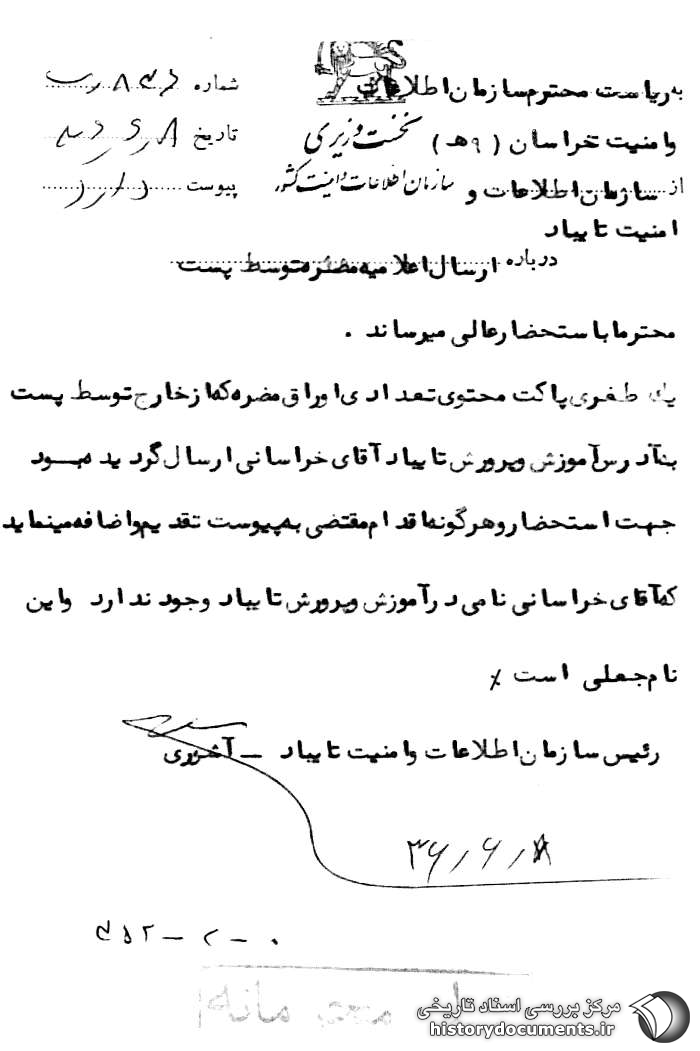 به ریاست محترم سازمان اطلاعات
و امنیت خراسان (۹ هـ) نخست وزیری
از سازمان اطلاعات و سازمان اطلاعات و امنیت کشور
امنیت تایباد
شماره
تاریخ
پیوست دارد
درباره ارسال اعلامیه مضره توسط پست
محترما باستحضار عالی میرساند .
یك طغری پاکت محتوی تعدادی اوراق مضره که از خارج توسط پست
بنآدرس آموزش و پرورش تایباد آقای خراسانی ارسال گردیده بود
جهت استحضار و هرگونه اقدام مقتضی به پیوست تقدیم و اضافه مینماید
که آقای خراسانی نامی در آموزش و پرورش تایباد وجود ندارد و این
نام جعلی است
رئیس سازمان اطلاعات و امنیت تایباد ـ آشوری
۳۶/۶/۸
محرمانه
مرکز بررسی اسناد تاریخی
historydocuments.ir